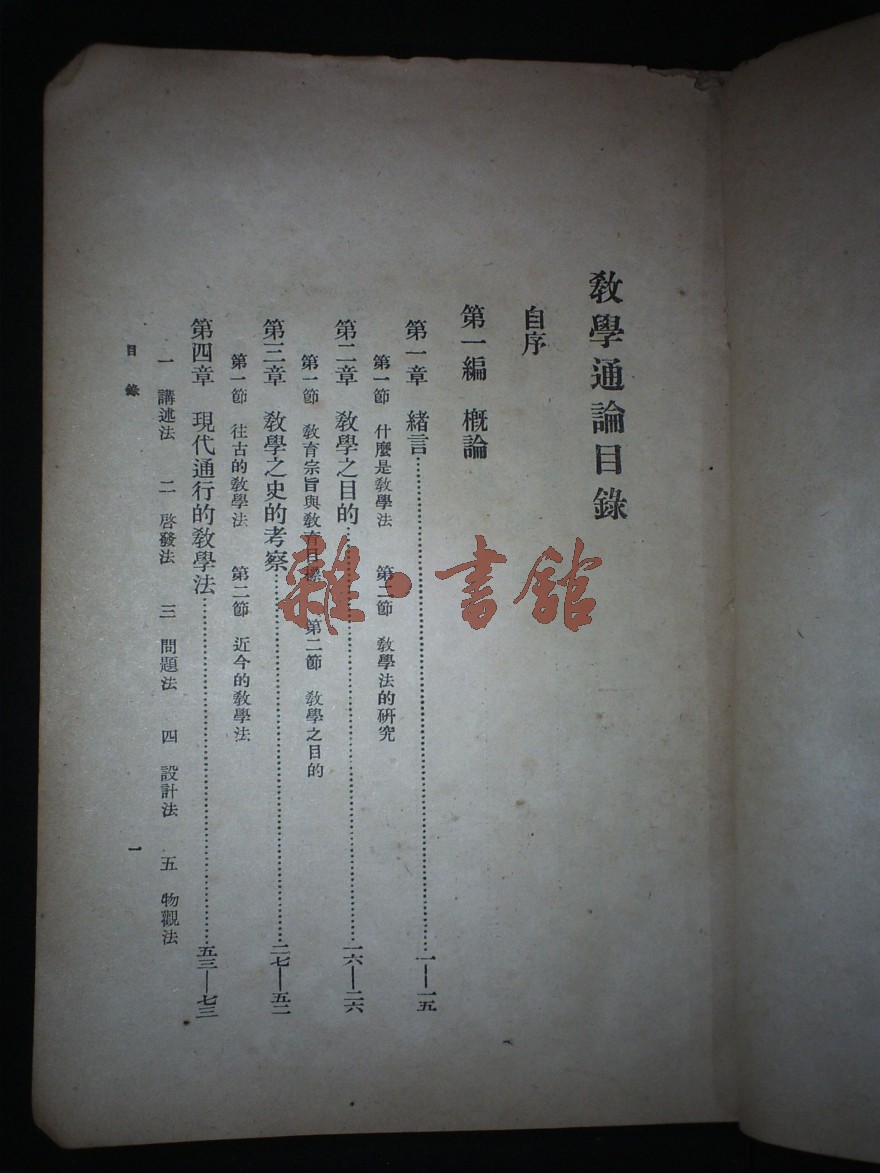 教學通論目錄
自序
第一編 概論
第一章 緒言……一—一五
第一節 什麼是教學法 第二節 教學法的研究
第二章 教學之目的……一六—二六
第一節 教育宗旨與教育目標 第二節 教學之目的
第三章 教學之史的考察……二七—五二
第一節 往古的教學法 第二節 近今的教學法
第四章 現代通行的教學法……五三—七三
一 講述法 二 啓發法 三 問題法 四 設計法 五 物觀法
目錄 一
雜·書館